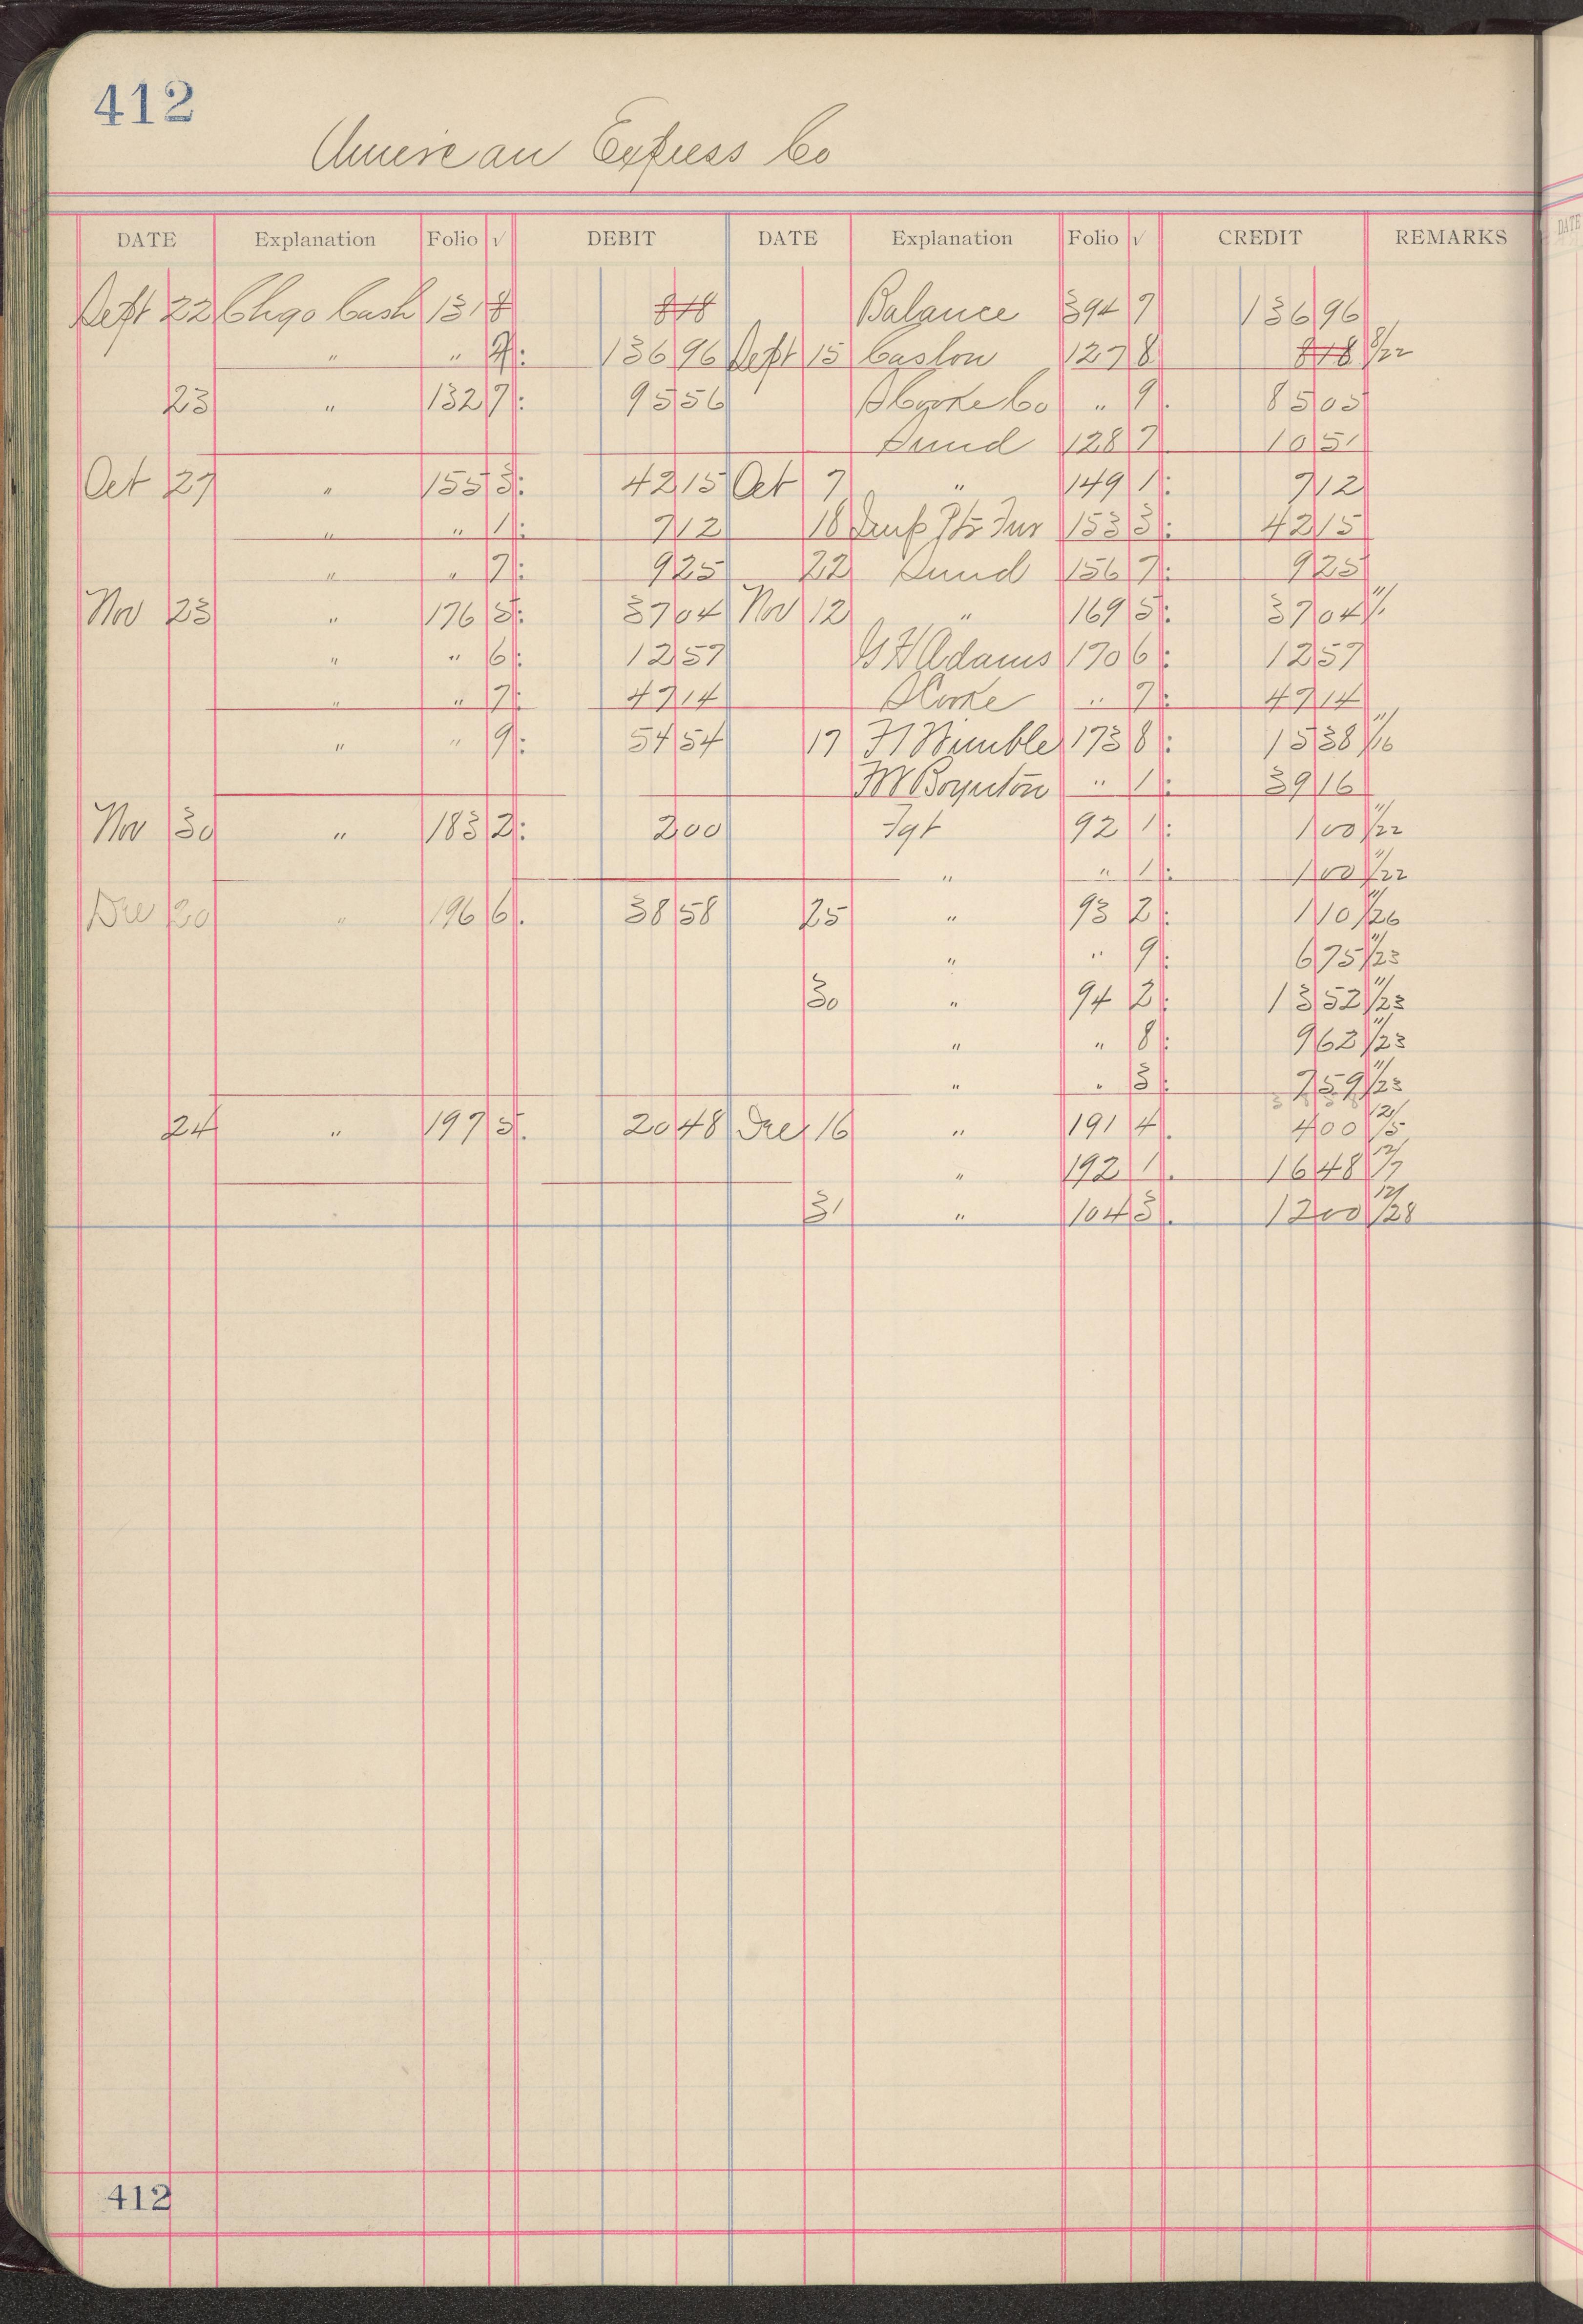 412
American Express Co
DATE Explanation Folio √ DEBIT DATE Explanation Folio √ CREDIT REMARKS
Sept 22 Chgo Cash 131 8 818 Balance 394 7 136 96
" " 136 96 Sept 15 Caslon 127 8 818 8/22
23 " 132 7 95 56 " 9 85 05
Sund 128 7 10 51
Oct 27 " 155 3 42 15 Oct 7 " 149 1 7 12
" " 1 7 12 18 153 3 42 15
" " 7 9 25 22 Sund 156 7 9 25
Nov 23 " 176 5 37 04 Nov 12 " 169 5 37 04
" " 6 12 57 Adams 170 6 12 57
" " 7 47 14 " 7 47 14
" " 9 54 54 17 Wimble 173 8 15 38 11/16
M Boynton " 1 39 16
Nov 30 " 183 2 2 00 Fgt 92 1 1 00 11/22
" " 1 1 00 11/22
Dec 20 " 196 6 38 58 25 " 93 2 1 10 11/26
" " 9 6 75 11/23
30 " 94 2 13 52 11/23
" " 8 9 62 11/23
" " 3 7 59 11/23
24 " 197 5 20 48 Dec 16 " 191 4 4 00 12/5
" 192 1 16 48 12/7
31 " 104 3 12 00 12/28
412